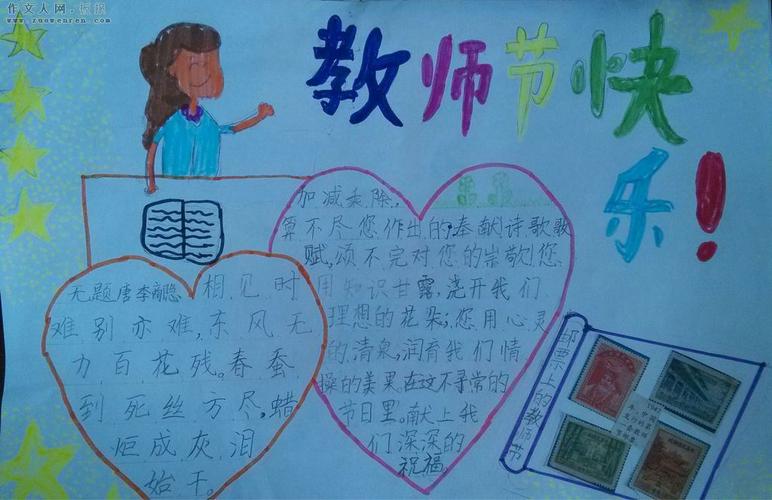 作文人网·板报
www.zuowenren.com
教师节快
乐！
加减乘除，
算不尽您作出的奉献！诗歌歌
赋，颂不完对您的崇敬！您
用知识甘露，浇开我们
理想的花朵；您用心灵
的清泉，润育我们情
操的美果。在这不寻常的
节日里。献上我
们深深的
祝福
无题 唐 李商隐 相见时
难别亦难，东风无
力百花残。春蚕
到死丝方尽，蜡
炬成灰泪
始干。
邮票上的教师节
1947